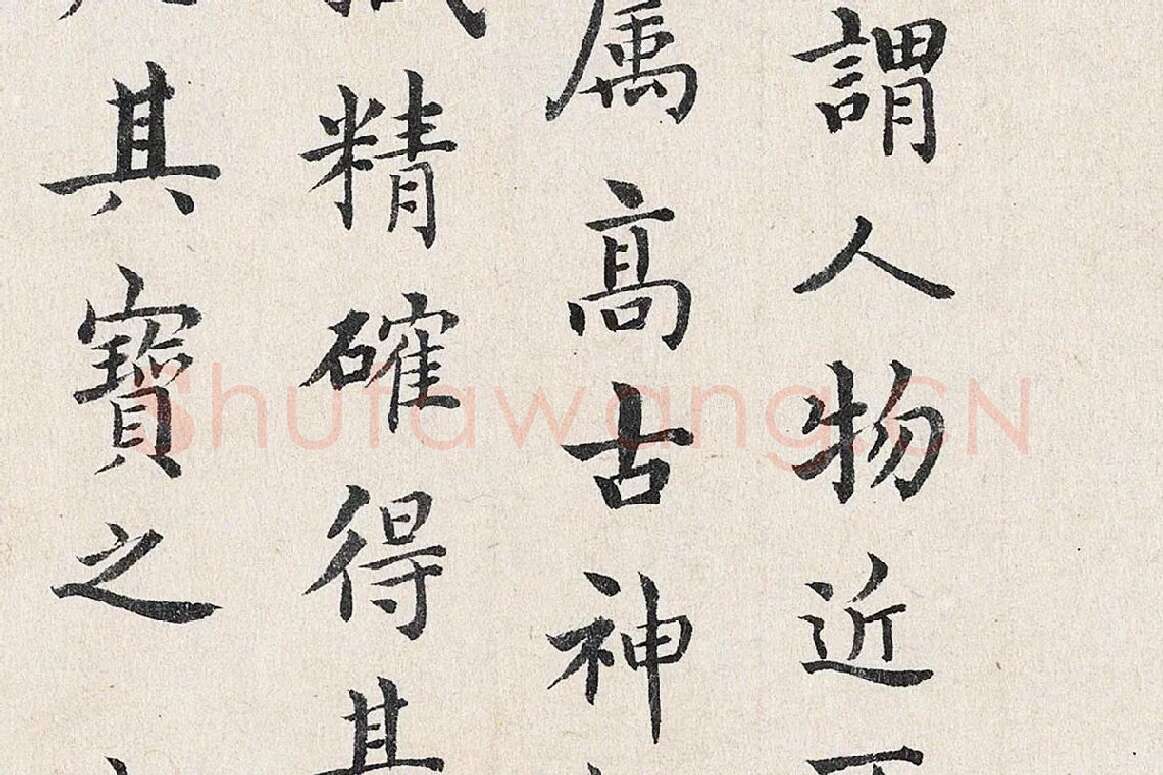 謂人物近
属髙古神
精確得其
其寶之
shufawang.CN